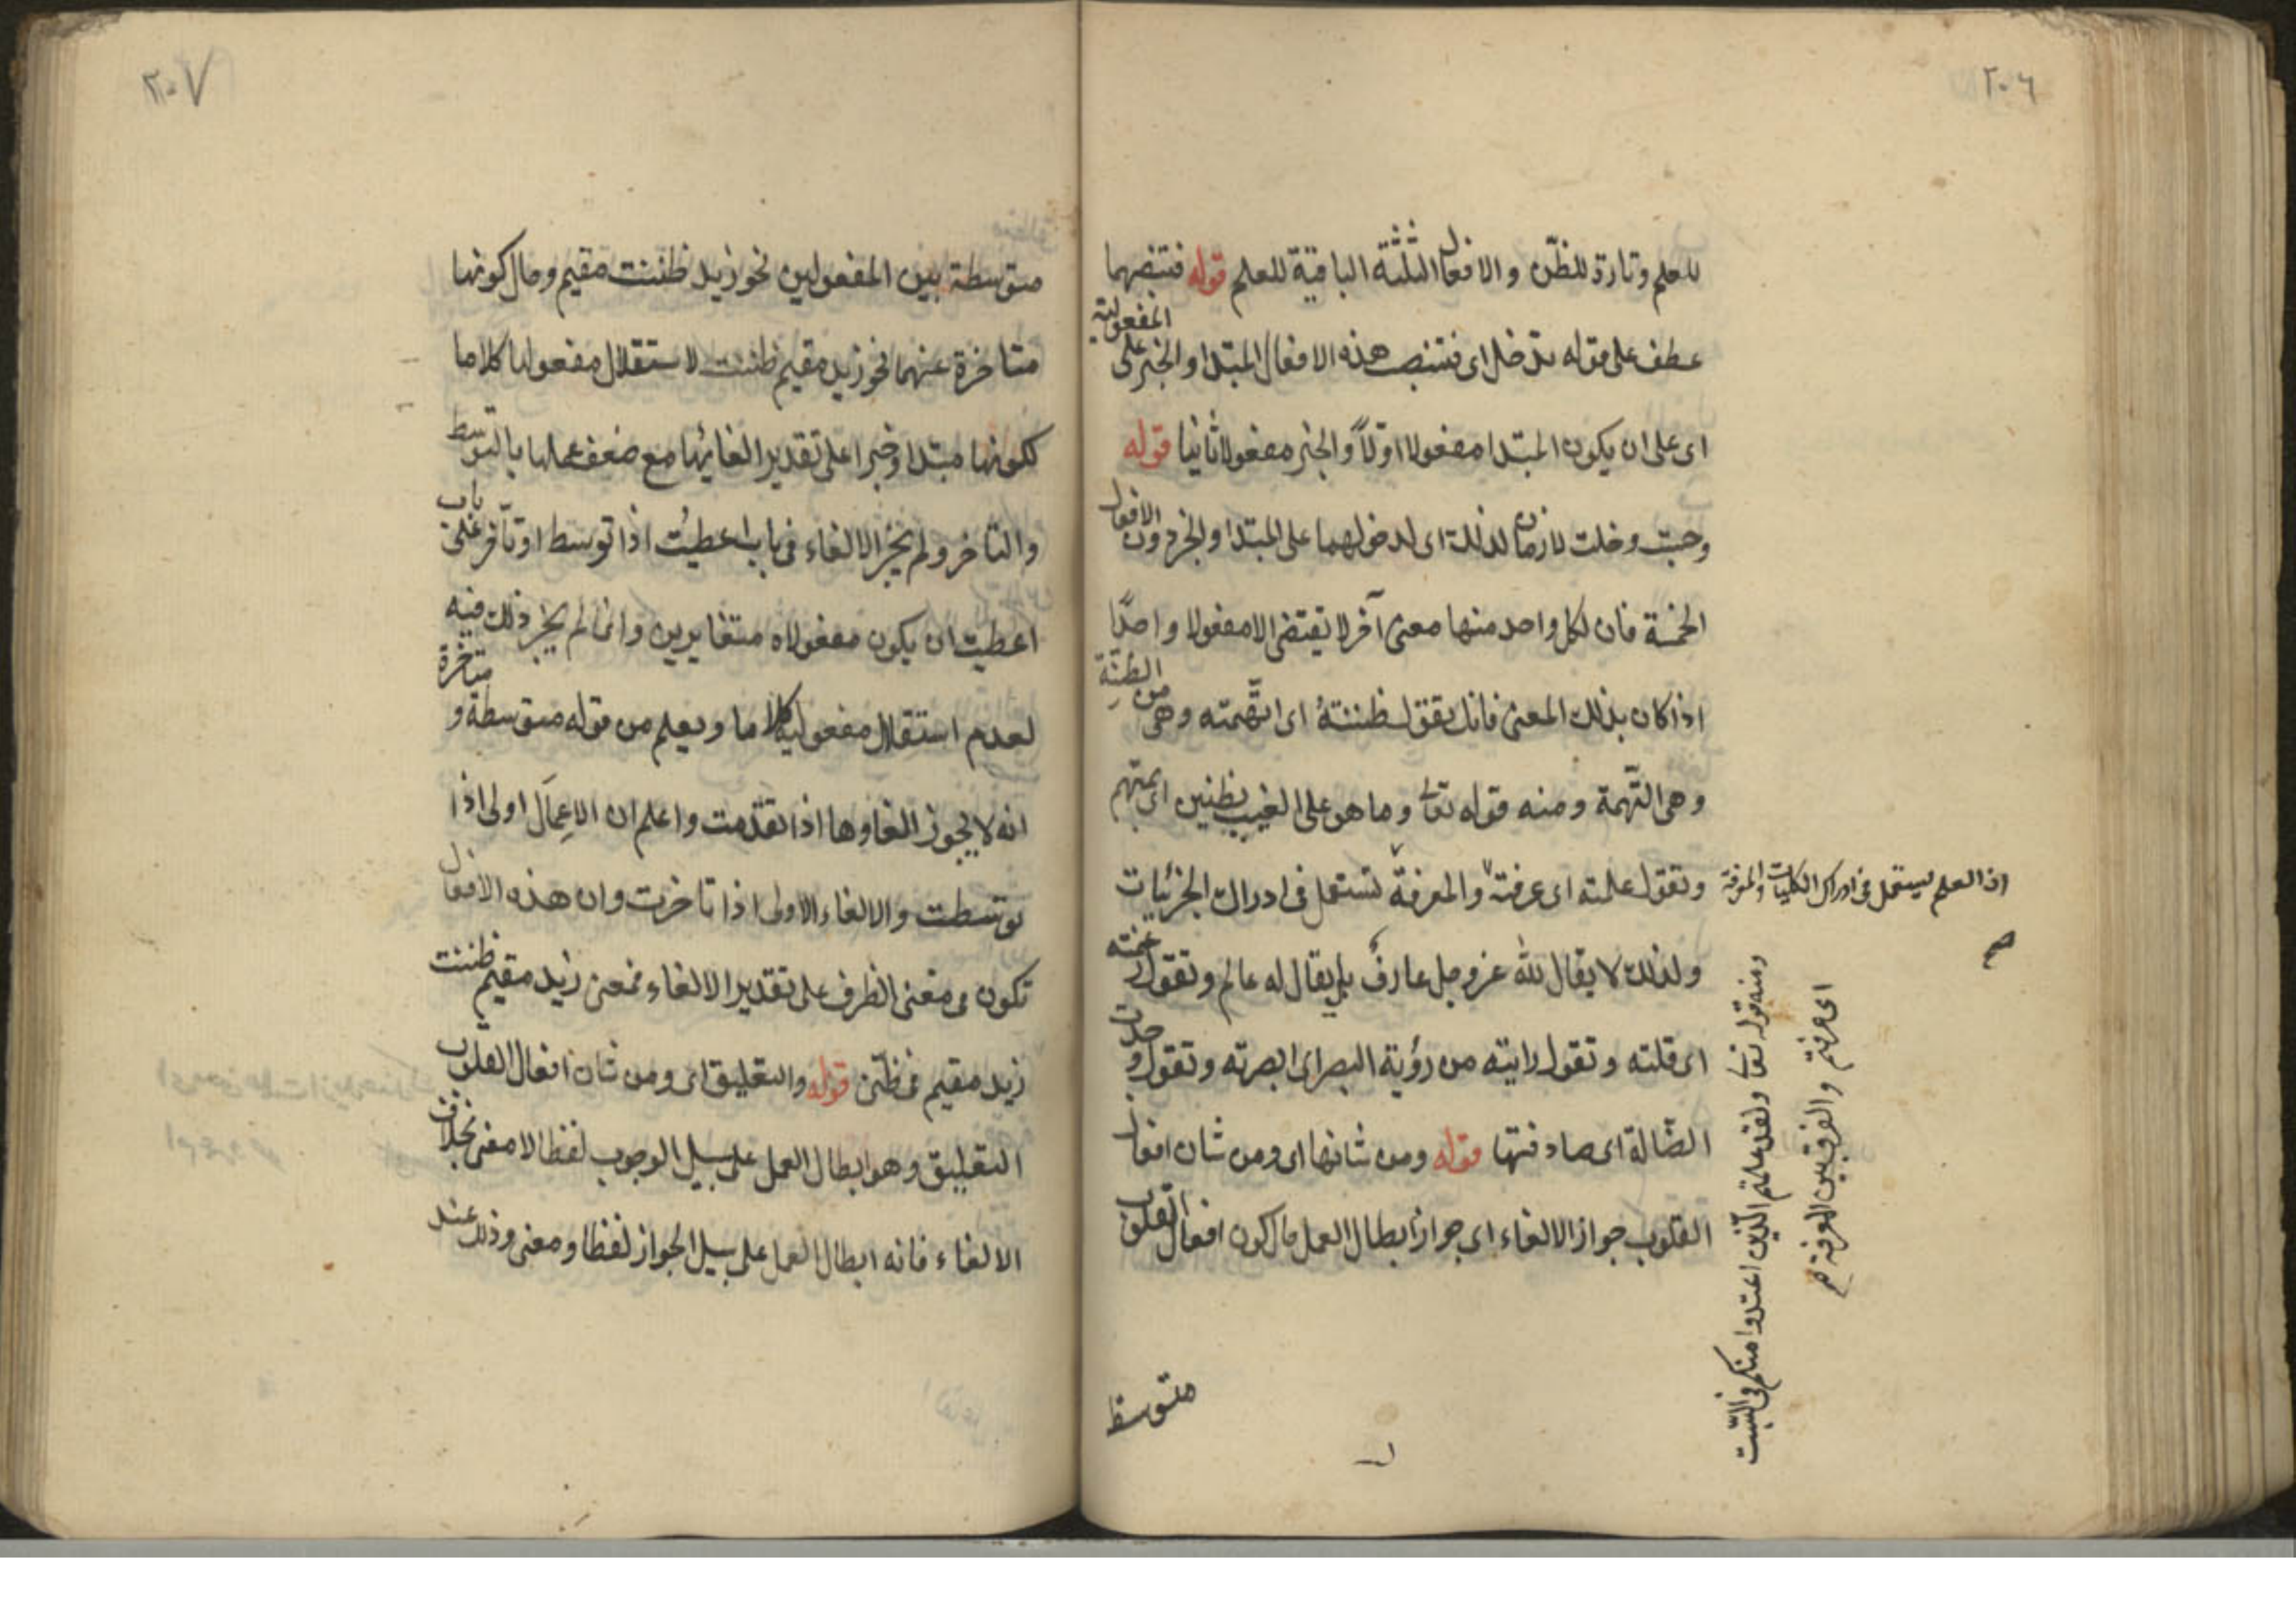 ٢٠٦
للعلم وتارة للظنّ والافعال الثلثة الباقية للعلم قوله فتنصبهما
عطف على قوله تدخل اى فتنصب هذه الافعال المبتدا والخبر على المفعولية
اى على ان يكون المبتدا مفعولا اوّلاً والخبر مفعولا ثانيا قوله
وحسبت وخلت لازمان لذلك اى لدخولهما على المبتدا والخبر دون الافعال
الخمسة فان لكل واحد منها معنى آخر لا يقتضى الا مفعولا واحدًا
اذا كان بذلك المعنى فانك تقول ظننتهُ اى اتّهمته وهى من الظنّة
وهى التّهمة ومنه قوله تعالى وما هو على الغيب بظنين اى بمتهم
وتقول علمته اى عرفته والمعرفة تستعمل فى ادراك الجزئيات
اذ العلم يستعمل فى ادراك الكليات والمعرفة
ولذلك لا يقال لله عز وجل عارف بل يقال له عالم وتقول زعمته
اى قلته وتقول رايته من رؤية البصر اى ابصرته وتقول وجدت
الضّالة اى صادفتها قوله ومن شانها اى ومن شان افعال
القلوب جواز الالغاء اى جواز ابطال العمل حال كون افعال القلوب
متوسط
ومنه قوله تعالى ولقد علمتم الّذين اعتدوا منكم فى السّبت
اى عرفتم والفرق بين المعرفة
٢٠٧
متوسطة بين المفعولين نحو زيد ظننت مقيم وحال كونها
متاخرة عنهما نحو زيد مقيم ظننت لاستقلال مفعولها كلاما
لكونها مبتدا وخبرا على تقدير الغائها مع ضعف عملها بالتوسط
والتاخر ولم يجز الالغاء فى باب اعطيت اذا توسط او تأخر باب
اعطيت ان يكون مفعولاه متغايرين وانما لم يجز ذلك فيه
لعدم استقلال مفعوليه كلاما ويعلم من قوله متوسطة و متاخرة
انه لا يجوز الغاوها اذا تقدمت واعلم ان الاِعمَال اولى اذا
توسطت والالغاء الاولى اذا تاخرت وان هذه الافعال
تكون فى معنى الظرف على تقدير الالغاء فمعنى زيد مقيم ظننت
زيد مقيم فى ظنّى قوله والتعليق اى ومن شان افعال القلوب
التعليق وهو ابطال العمل على سبيل الوجوب لفظا لا معنى بخلاف
الالغاء فانه ابطال العمل على سبيل الجواز لفظا ومعنى وذلك عند